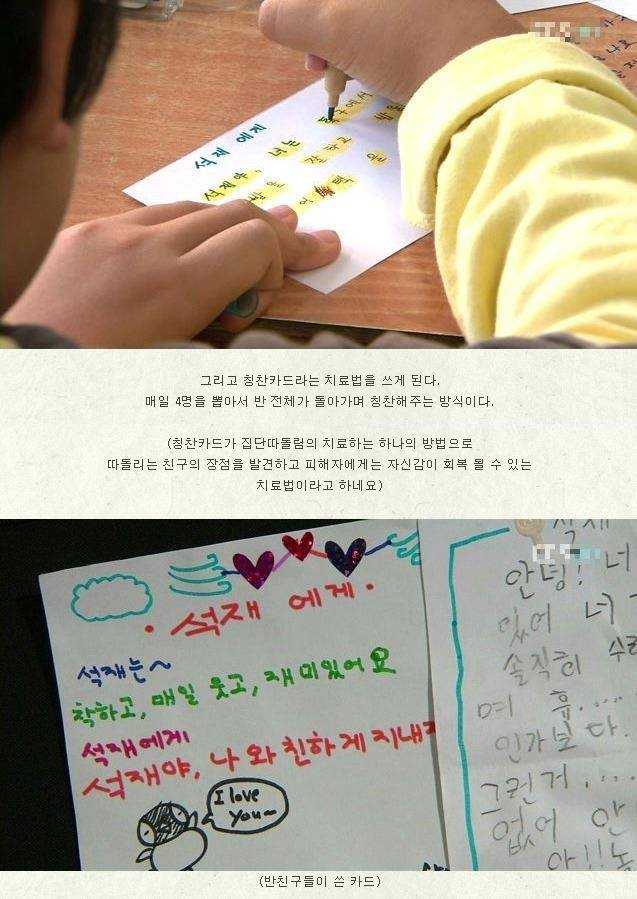 석재 에게
석재야, 너는
그리고 칭찬카드라는 치료법을 쓰게 된다.
매일 4명을 뽑아서 반 전체가 돌아가며 칭찬해주는 방식이다.
(칭찬카드가 집단따돌림의 치료하는 하나의 방법으로
따돌리는 친구의 장점을 발견하고 피해자에게는 자신감이 회복 될 수 있는
치료법이라고 하네요)
석재 에게
석재는~
착하고, 매일 웃고, 재미있어요
석재에게
석재야, 나와 친하게 지내
I love
you~
석재
안녕! 너
있어 너
솔직히
며 휴....
인가보다.
그런거....
없어 안
(반친구들이 쓴 카드)